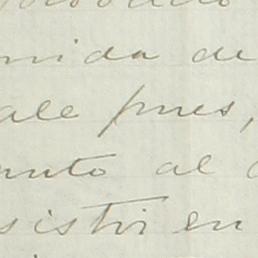 nida de
ale pues,
unto al
sistir en